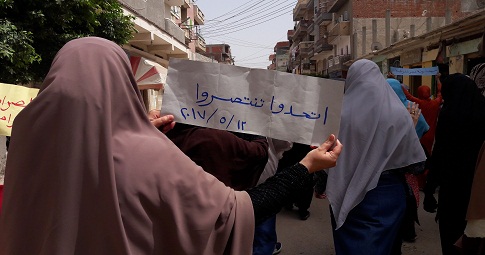 اتحدوا تنتصروا
٢٠١٧/٥/١٢